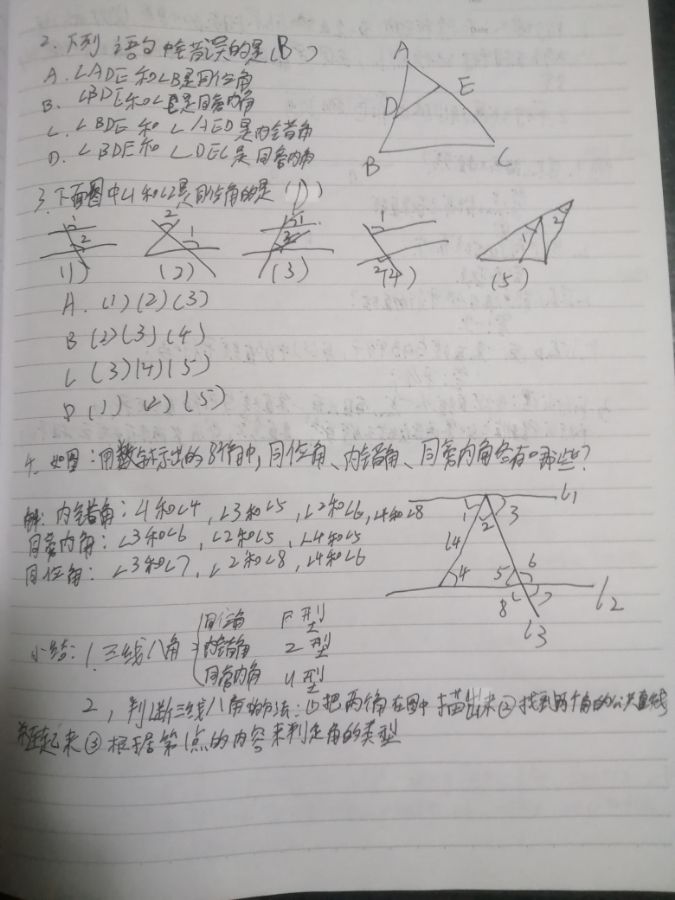 2. 下列语句中错误的是(B)
A. ∠ADE和∠B是同位角
B. ∠BDE和∠ 是同旁内角
C. ∠BDE和∠AED是内错角
D. ∠BDE和∠DEC是同旁内角
A
E
D
B
C
3. 下面图中∠1和∠2是同位角的是(D)
1
2
2
1
1
2
1
2
1
2
(1)
(2)
(3)
(4)
(5)
A. (1)(2)(3)
B (2)(3)(4)
C (3)(4)(5)
D (1) (2) (5)
4. 如图:用数字标出的8个角中,同位角、内错角、同旁内角各有哪些?
解: 内错角: ∠1和∠4, ∠3和∠5, ∠2和∠6, ∠4和∠8
同旁内角: ∠3和∠6, ∠2和∠5, ∠4和∠5
同位角: ∠3和∠7, ∠2和∠8, ∠4和∠6
l1
1
2
3
l4
4
5
6
8
7
l2
l3
小结: 1. 三线八角
同位角 F型
内错角 Z型
同旁内角 U型
2, 判断三线八角的方法: ①把两个角在图中描出来②找到两个角的公共直线
起来③根据第1点的内容来判定角的类型